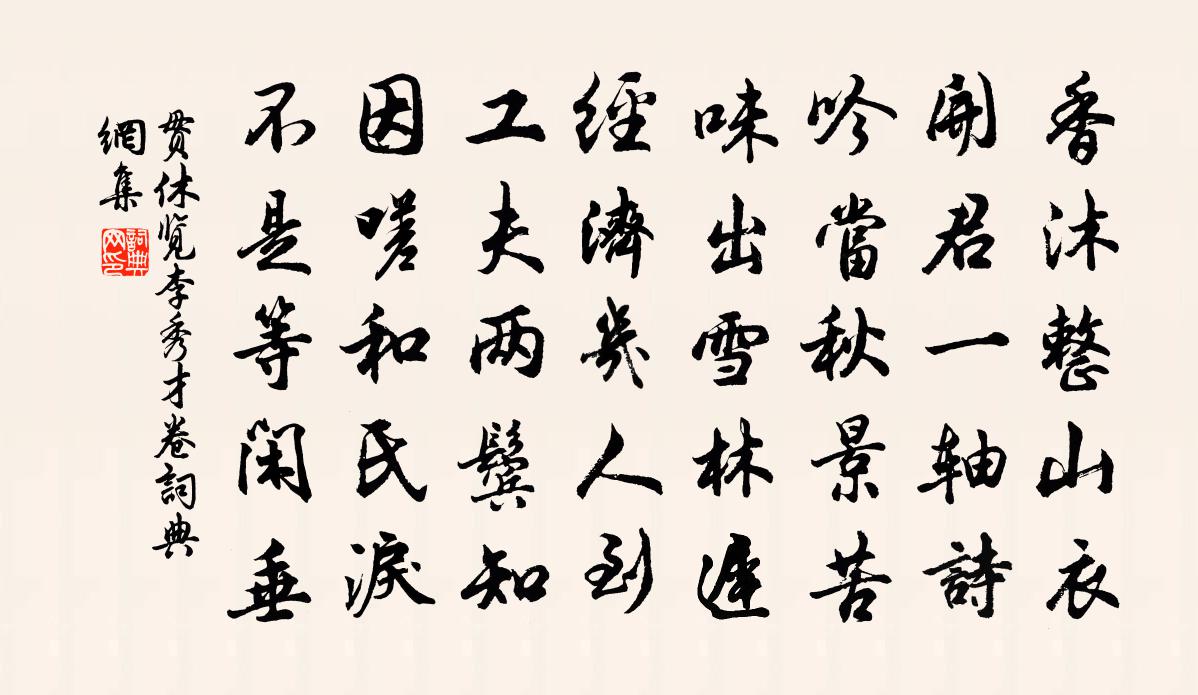 香沐整山衣
開君一軸詩
吟當秋景苦
味出雪林遲
經濟幾人到
工夫兩鬢知
因嗟和氏淚
不是等閑垂
貫休覽李秀才卷詞典
網集
詞典網印